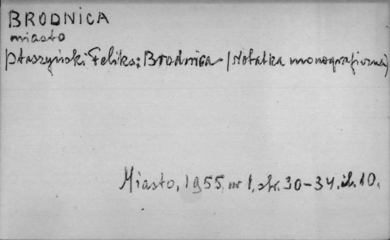 BRODNICA
miasto
Ptaszyński Feliks: Brodnica (Notatka monograficzna)
Miasto, 1955, nr 1, str. 30-34, il. 10.